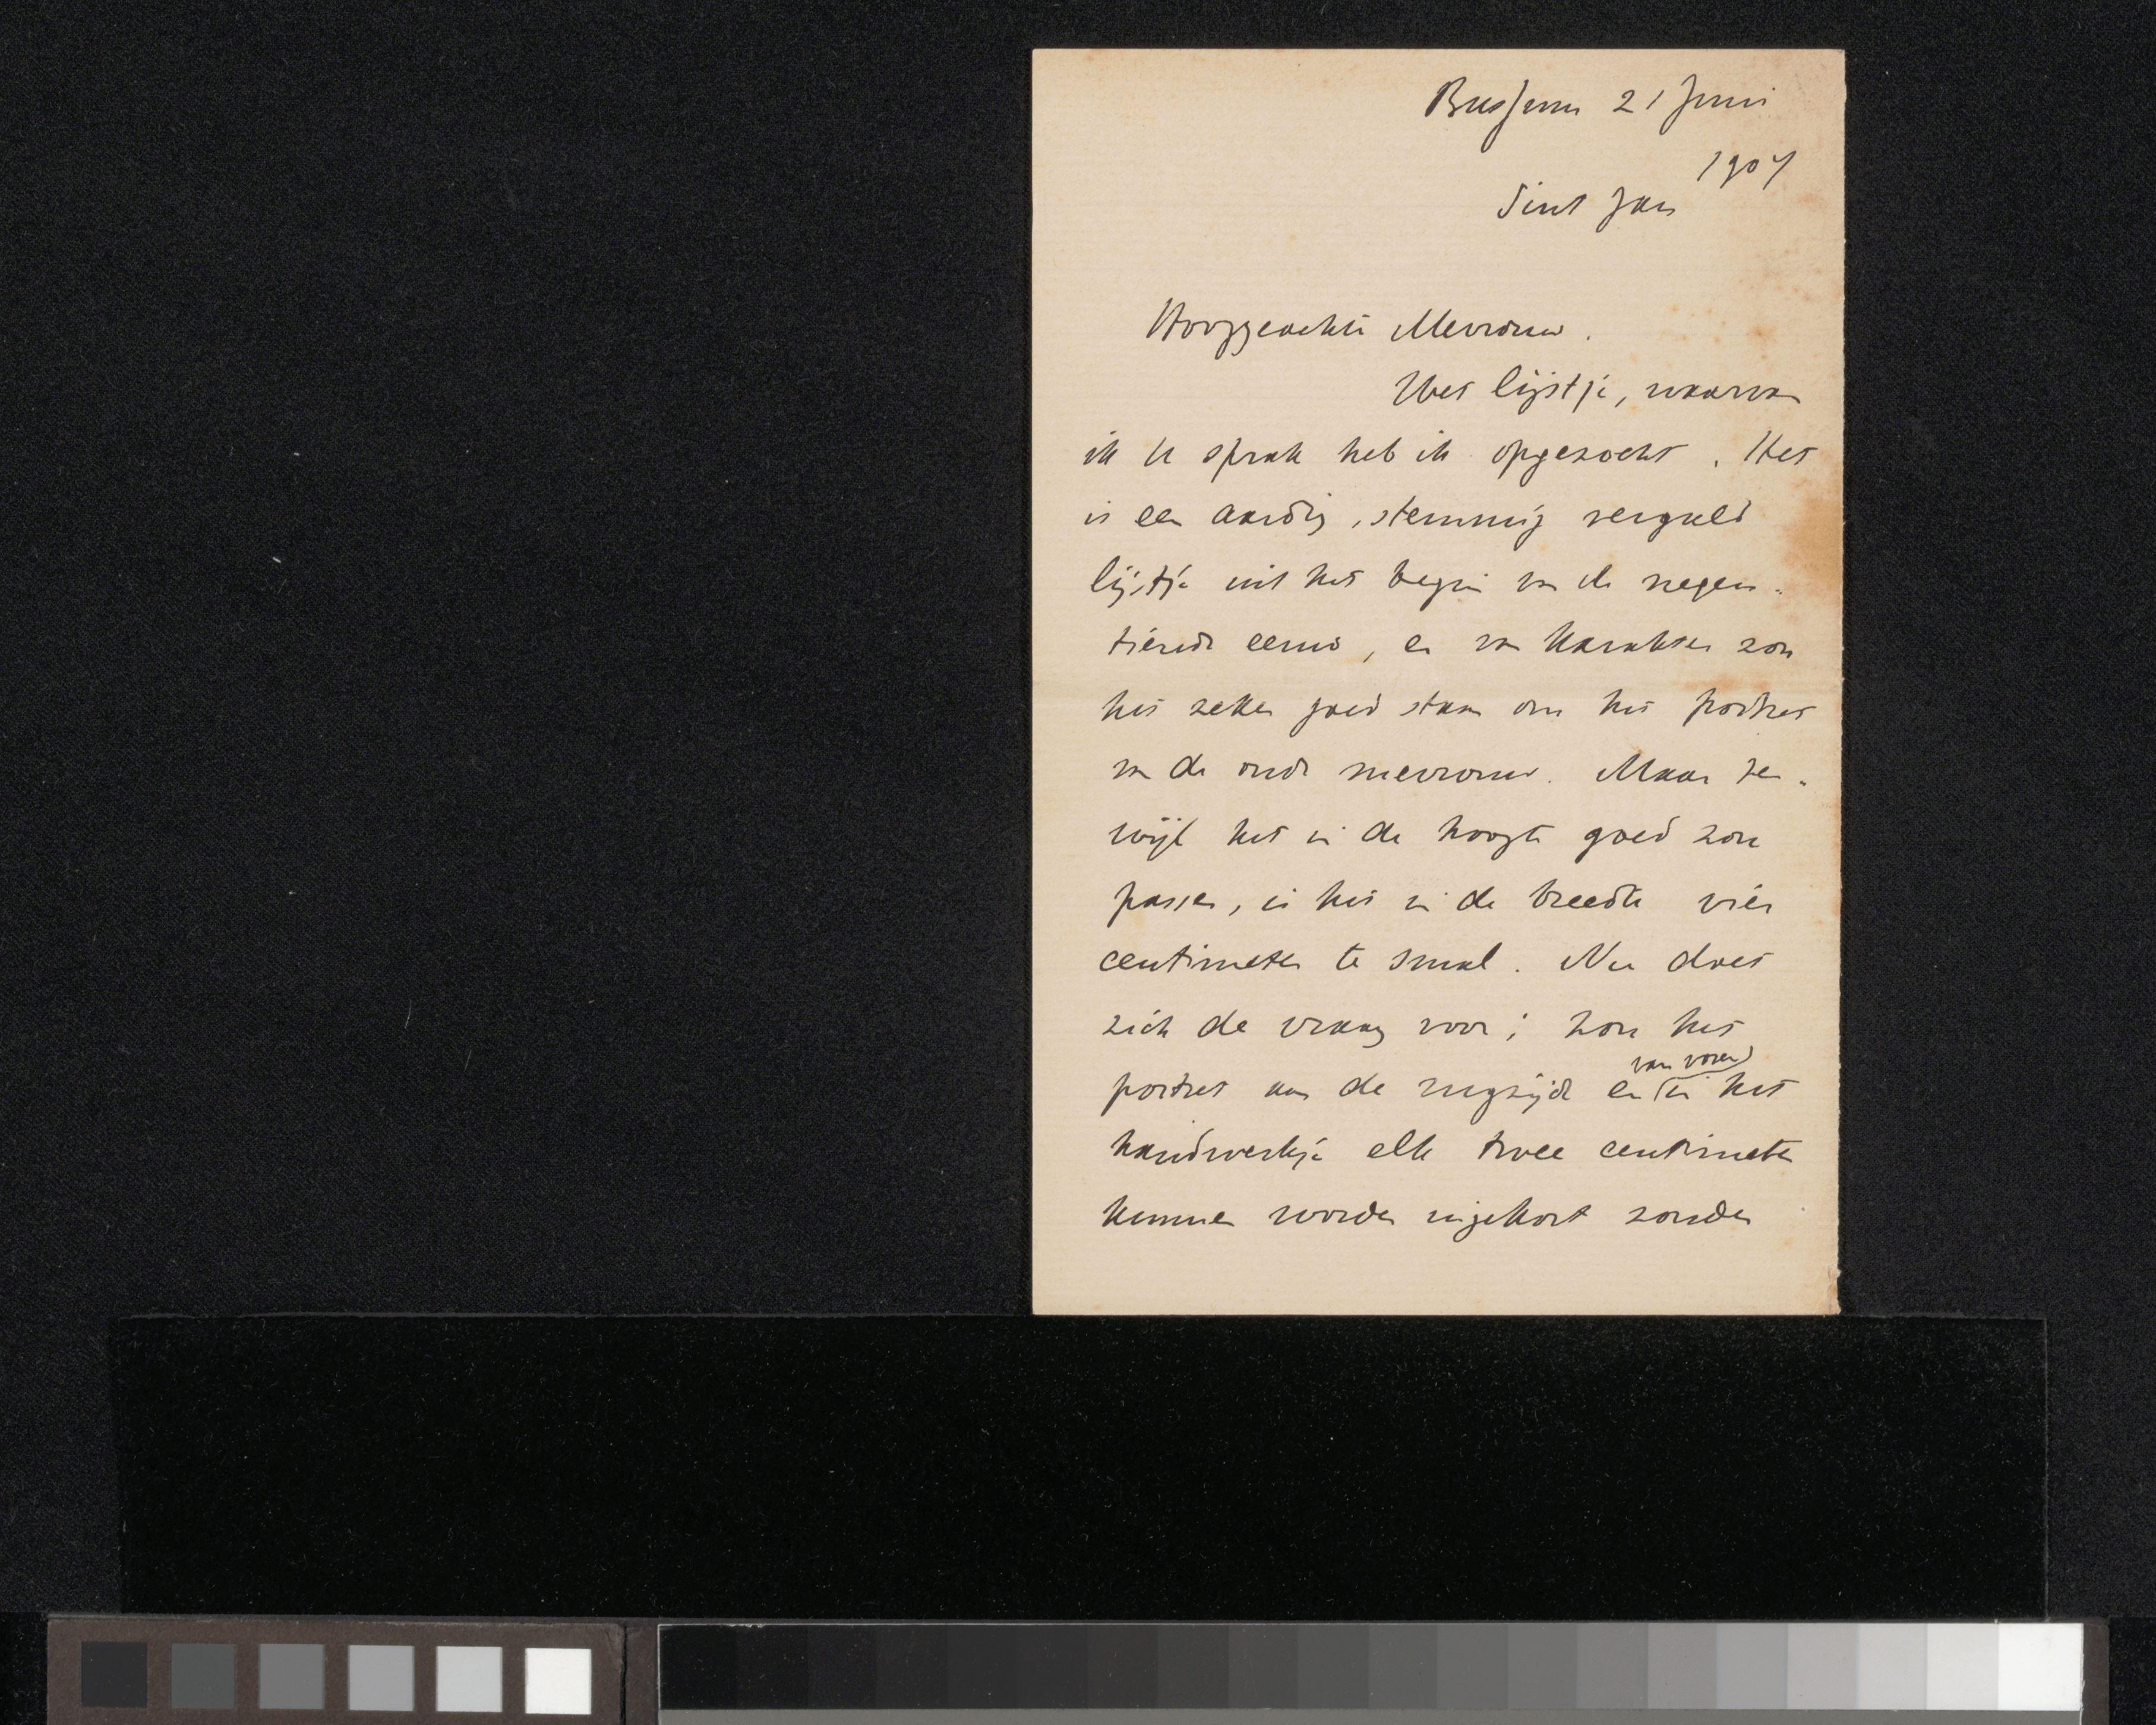 Bussum 21 Juni
1907
Sint Jan
Hooggeachte Mevrouw.
Het lijstje, waarvan
ik U sprak heb ik opgezocht. Het
is een aardig, stemmig verguld
lijstje uit het begin van de negen-
tiende eeuw, en van karakter zou
het zeker goed staan om het portret
van de oude mevrouw. Maar ter-
wijl het in de hoogte goed zou
passen, is het in de breedte vier
centimeter te smal. Nu doet
zich de vraag voor; zou het
van voren
portret aan de rugzijde en in het
handwerkje elk twee centimeter
kunnen worden ingekort zonder